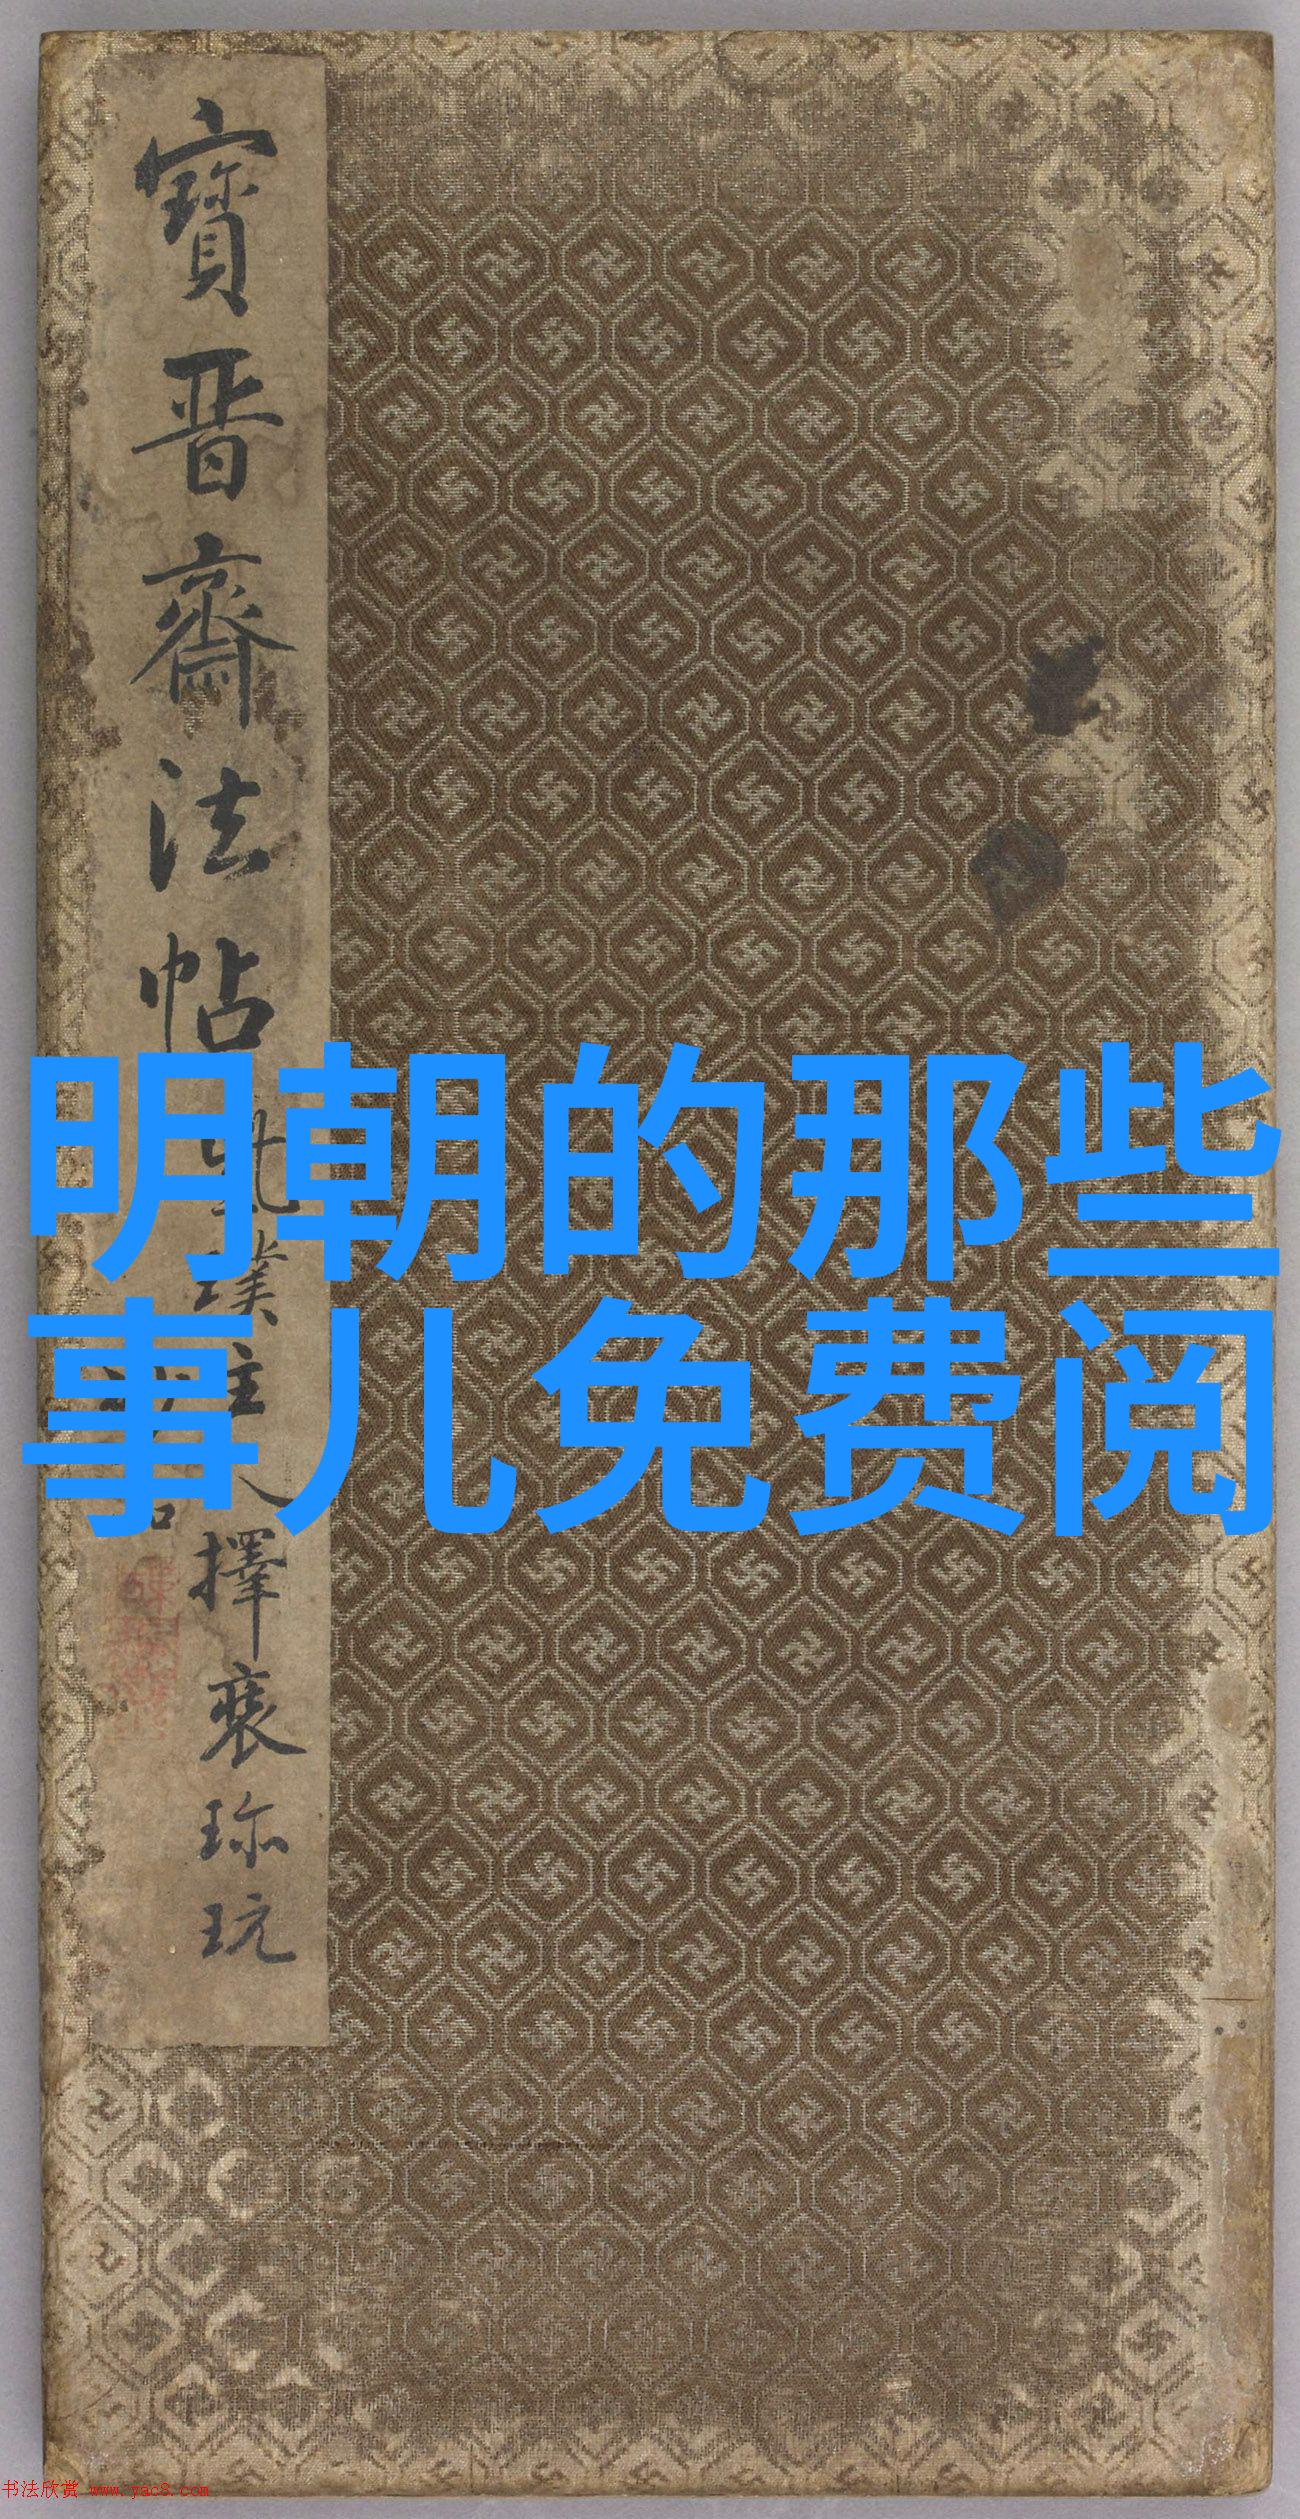 寶晋齋法帖
璞主人擇裘珎玩
明朝的那些
事儿免费阅
书法欣赏 www.yac8.com